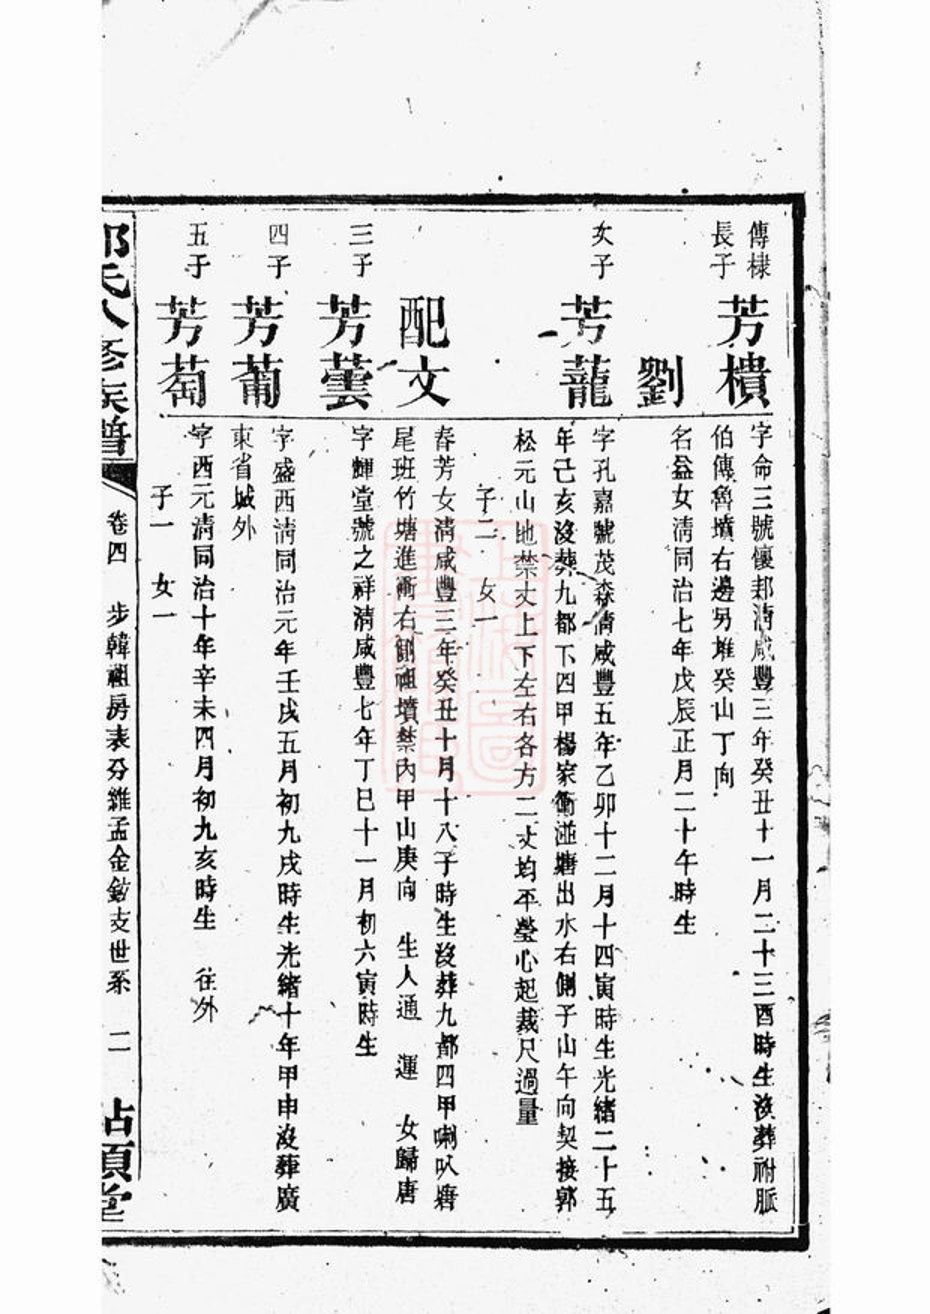 傳棣
長子
芳樻
字命三號懷邦清咸豐三年癸丑十一月二十三酉時生沒葬祔脈
伯傳魯墳右邊另堆癸山丁向
劉
名益女清同治七年戊辰正月二十午時生
女子
芳蘢
字孔嘉號茂森清咸豐五年乙卯十二月十四寅時生光緒二十五
年己亥沒葬九都下四甲楊家衝湴塘出水右側子山午向契接郭
松元山地禁丈上下左右各方二丈均平瑩心起裁尺過量
子二 女一
配文
春芳女清咸豐三年癸丑十月十八子時生沒葬九都四甲喇叭塘
尾班竹塘進衝右側祖墳禁內甲山庚向 生人通 運 女歸唐
三子
芳蕓
字輝堂號之祥清咸豐七年丁巳十一月初六寅時生
四子
芳蔔
字盛西清同治元年壬戌五月初九戌時生光緒十年甲申沒葬廣
東省城外
五子
芳萄
字西元清同治十年辛未四月初九亥時生 往外
子一 女一
氏八修族譜 卷四 步韓祖房表分維孟金鈙支世系 二